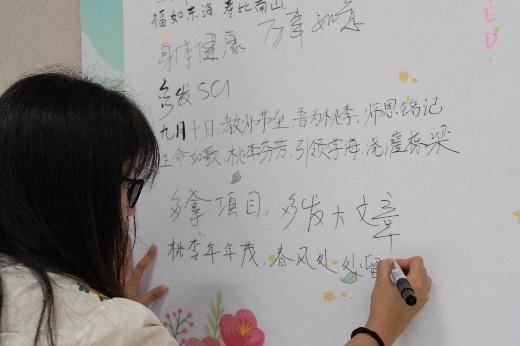 福如东海 寿比南山
身体健康 万事如意
多发SCI
九月十日,教师节至,吾为桃李,师恩铭记
生命如歌,桃李芬芳,引领学海,浇灌栋梁
多拿項目,多发大文章
桃李年年茂,春风处处留
ED.